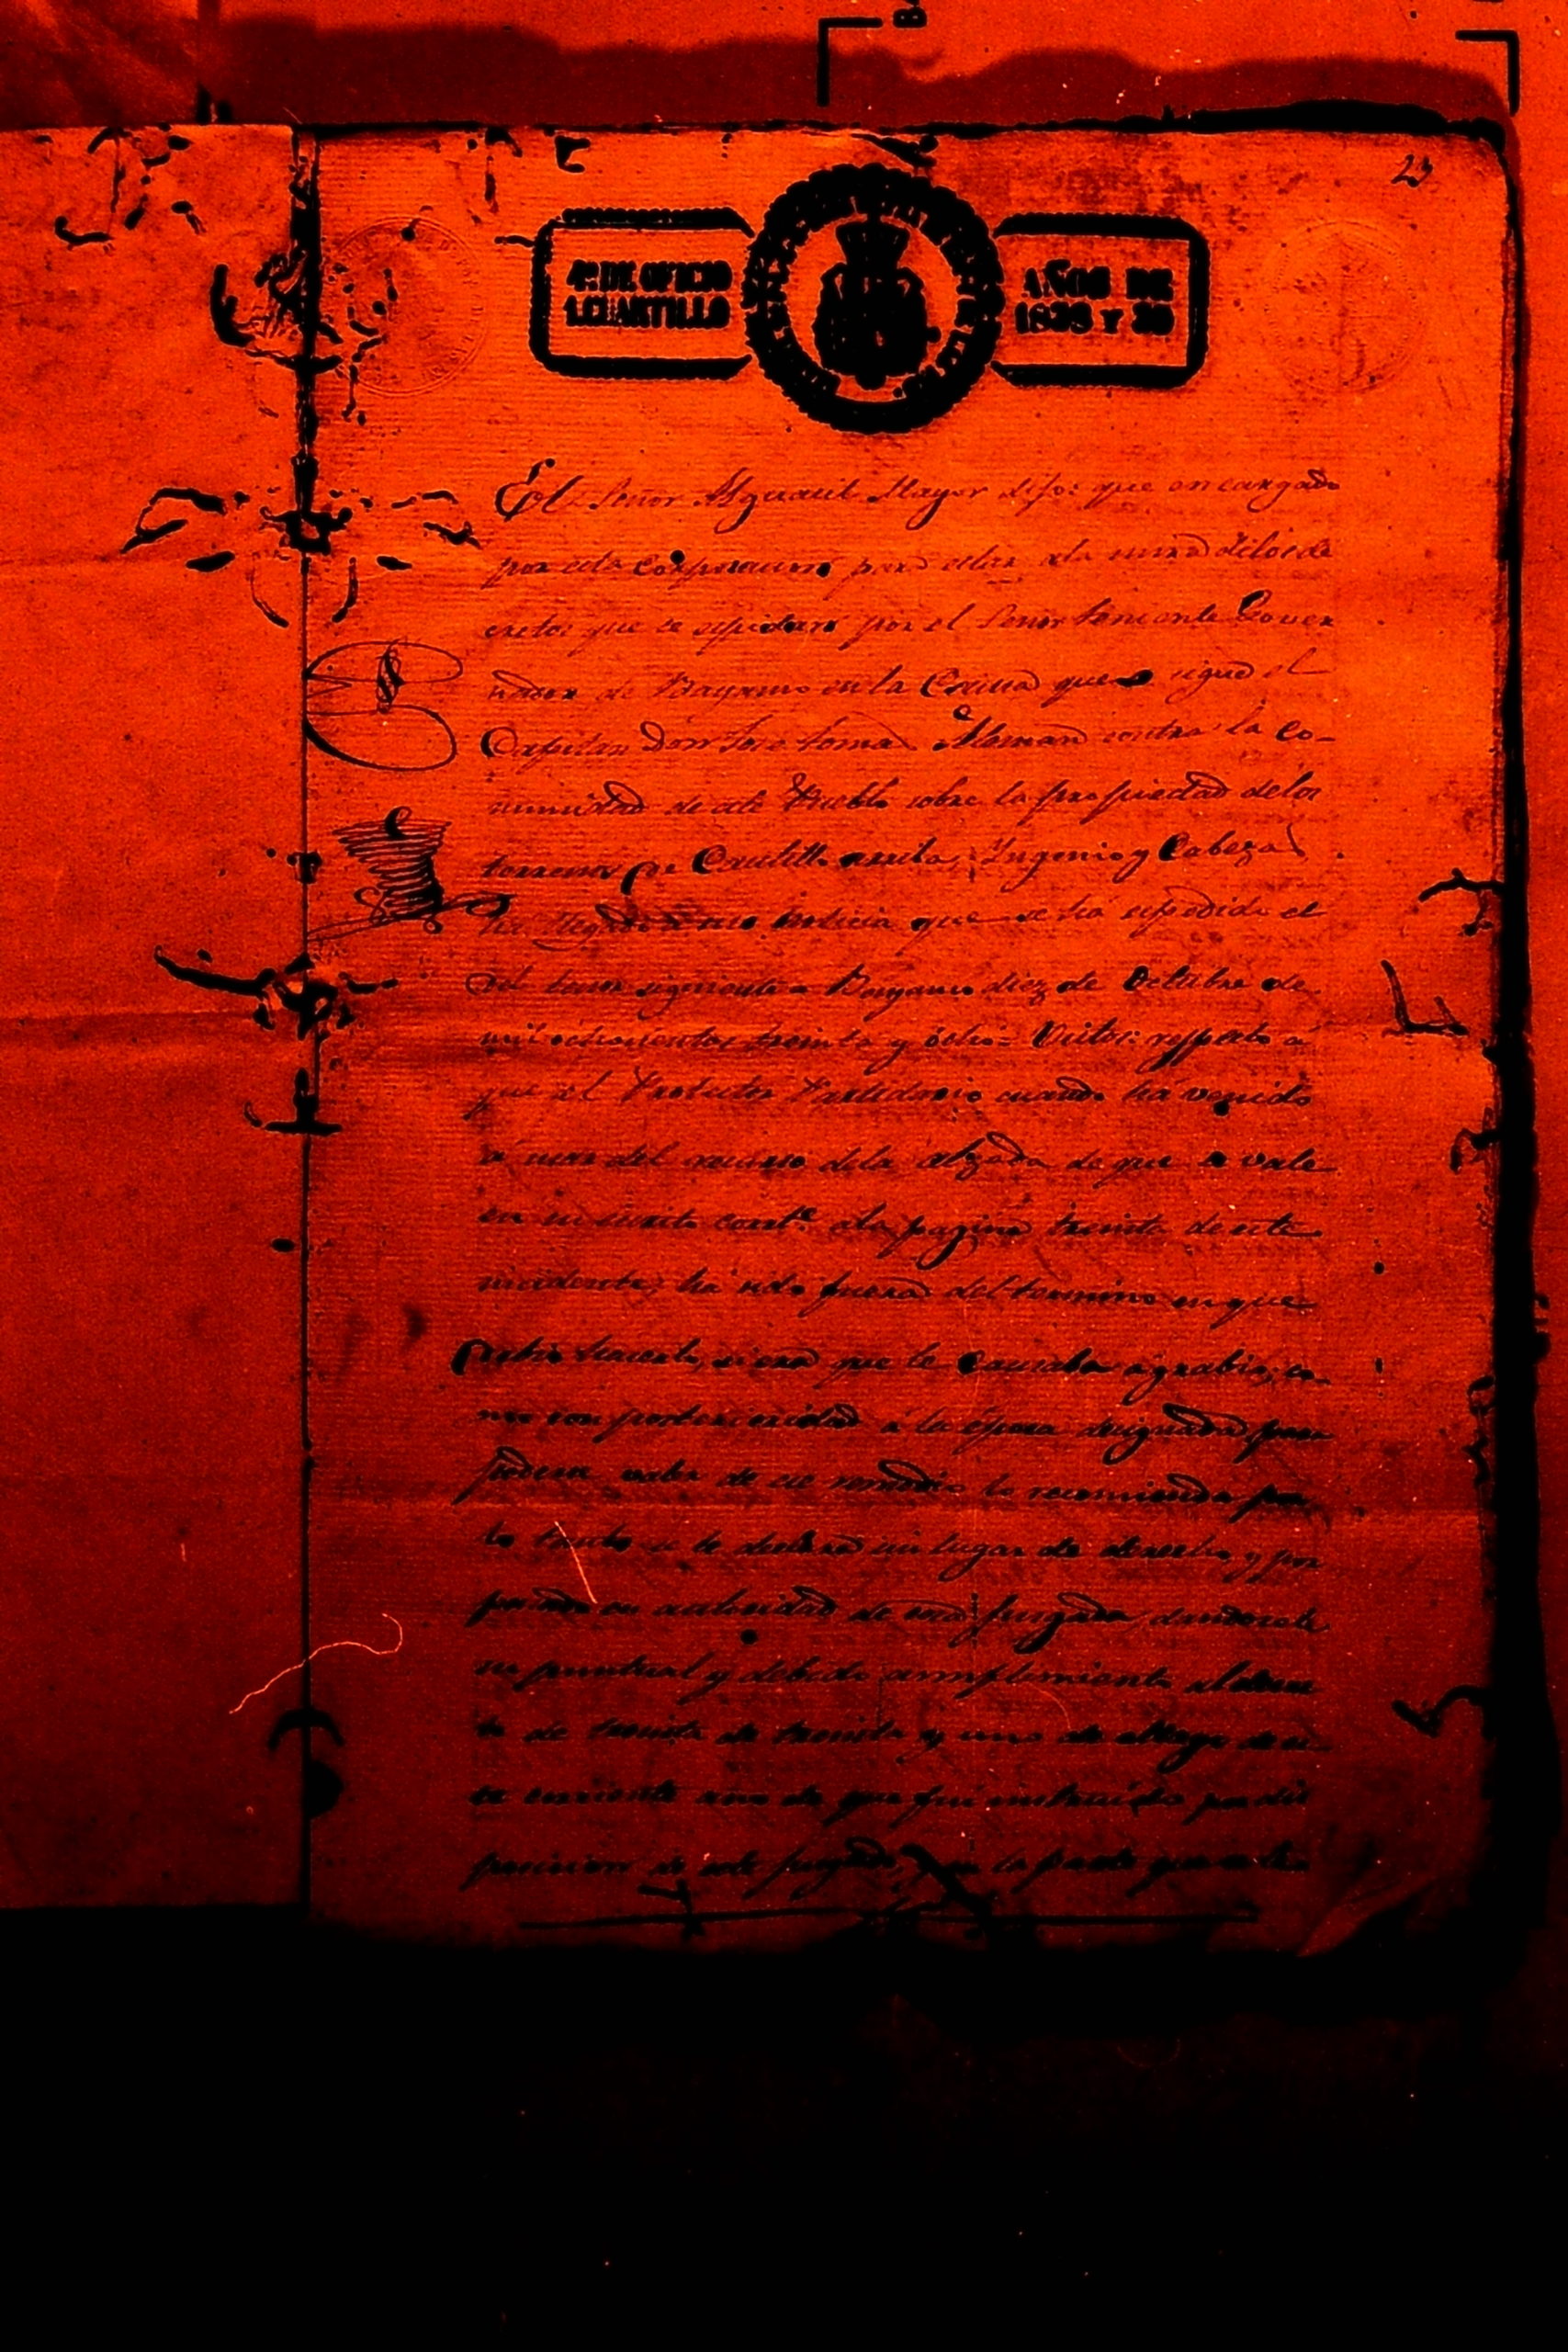 23
4º DE OFICIO
1.CUARTILLO
AÑOS DE
1838 Y 39
El Señor Alguacil Mayor dijo: que encargado
por esta Corporacion para estar ala mira delos de
cretos que se espidan por el Señor teniente Gover
nador de Bayamo en la Causa que sigue el
Capitan Don Jose tomas Aleman contra la Co-
munidad de este Pueblo sobre la propiedad delos
terrenos de Cautillo arriba, Yngenio y Cabezas
ha llegado a mi noticia que se ha espedido el
del tenor siguiente = Bayamo diez de Octubre de
mil ochocientos treinta y ocho = Vistos: respecto á
que el Protector Partidario cuando ha venido
á usar del recurso dela alzada de que se vale
en su escrito corrte. ala pagina treinta de este
incidente, ha sido fuera del termino en que
debio hacerlo, si era que le causaba agrabio, co-
mo con posterioridad á la época designada para
poderse valer de ese remedio lo recomienda por
lo tanto se le declara sin lugar de derecho y por
pasada en autoridad de cosa juzgada, dandosele
su puntual y debido cumplimiento al
to de treinta de treinta y uno de Mayo de es-
te corriente año de que fué instruido por dis
posicion de este juzgado,